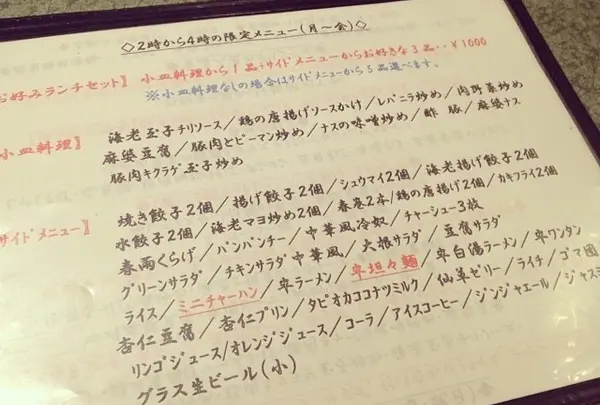 ◇2時から4時の限定メニュー(月〜金)◇
お好みランチセット】 小皿料理から1品+サイドメニューからお好きな3品‥¥1000
※小皿料理なしの場合はサイドメニューから5品選べます。
小皿料理】
海老玉子チリソース/鶏の唐揚げソースかけ/レバニラ炒め/肉野菜炒め
麻婆豆腐/豚肉とピーマン炒め/ナスの味噌炒め/酢豚/麻婆ナス
豚肉キクラゲ玉子炒め
サイドメニュー】
焼き餃子2個/揚げ餃子2個/シュウマイ2個/海老揚げ餃子2個
水餃子2個/海老マヨ炒め2個/春巻2本/鶏の唐揚げ2個/カキフライ2個
春雨くらげ/バンバンチー/中華風冷奴/チャーシュー3枚
グリーンサラダ/チキンサラダ中華風/大根サラダ/豆腐サラダ
ライス/ミニチャーハン/半ラーメン/半坦々麺/半白湯ラーメン/半ワンタン
杏仁豆腐/杏仁プリン/タピオカココナツミルク/仙草ゼリー/ライチ/ゴマ団
リンゴジュース/オレンジジュース/コーラ/アイスコーヒー/ジンジャエール/ジャス
グラス生ビール(小)